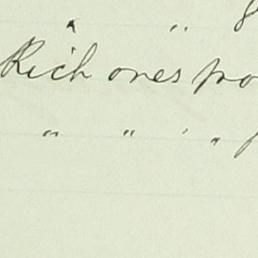 " "
Rich ones
" " " "